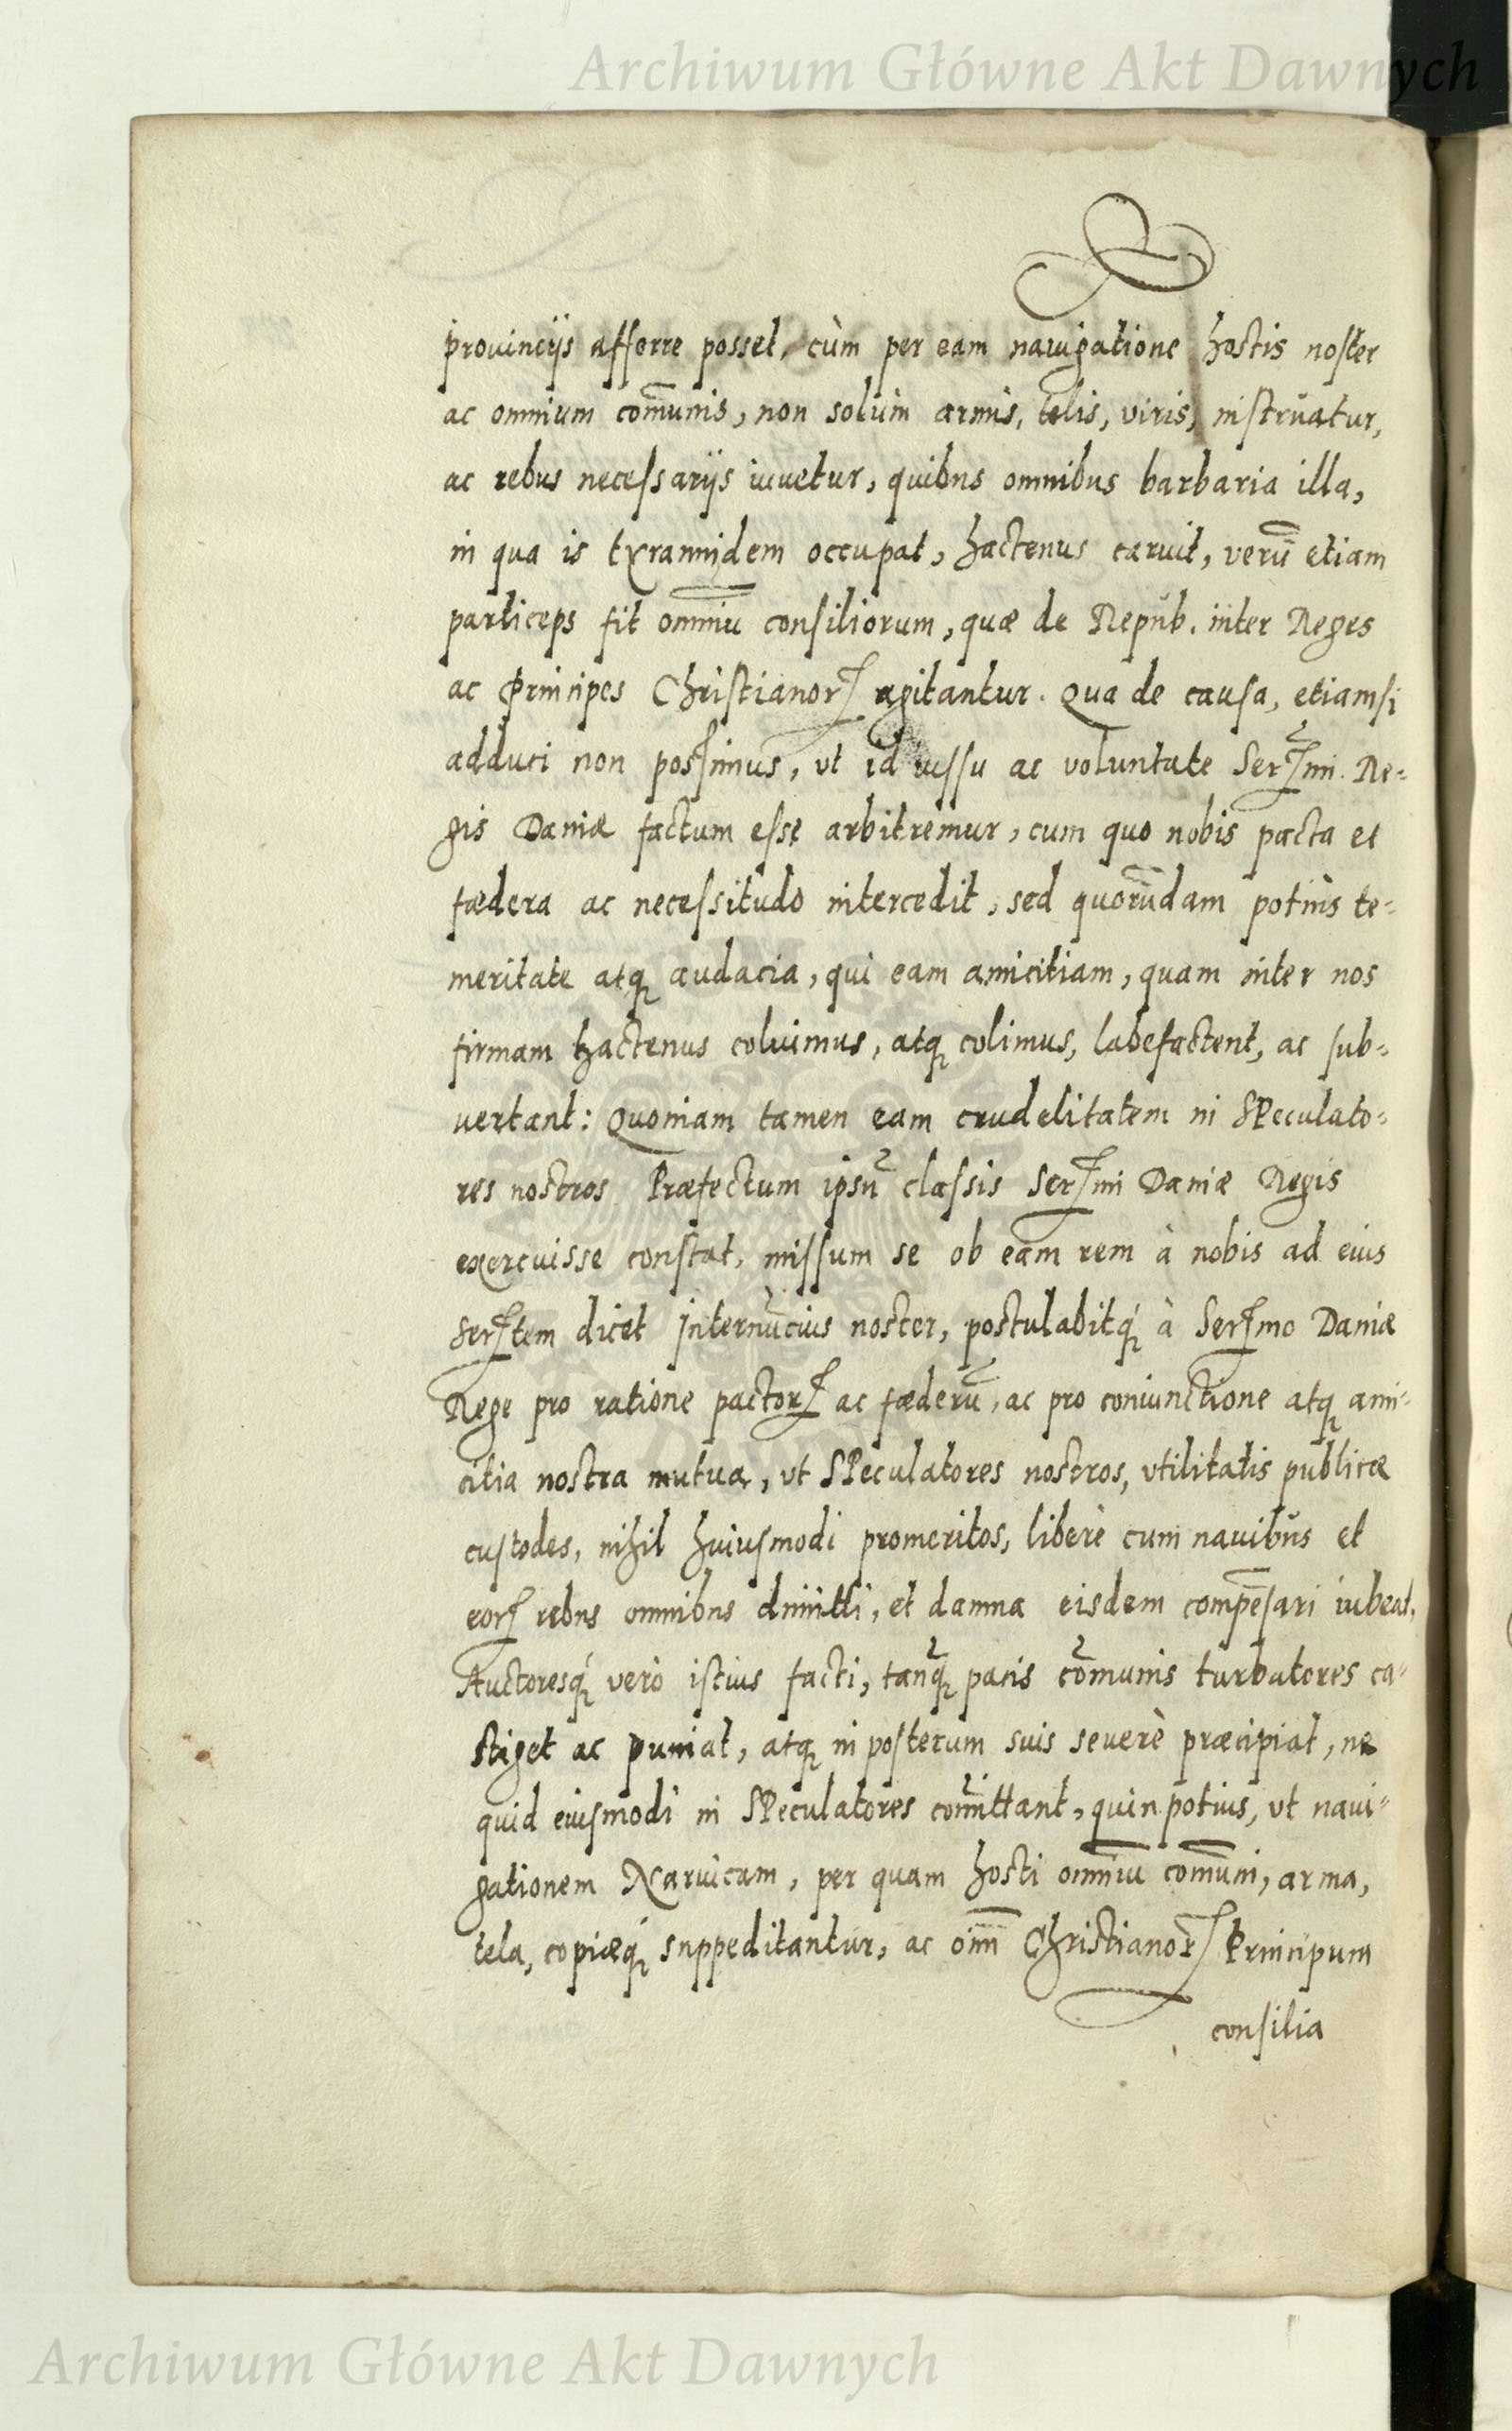 Archiwum Główne Akt Dawnych
prouincijs afferre posset, cùm per eam nauigatione hostis noster
ac omnium com̄unis, non solùm armis, telis, viris, instrŭatur,
ac rebus necessarijs iuuetur, quibus omnibus barbaria illa,
in qua is tyrannidem occupat, hactenus caruit, verū etiam
particeps fit omniū consiliorum, quæ de Repub. inter Reges
ac Principes Christianorꝝ agitantur. Qua de causa, etiamsi
adduci non possimus, vt id iussu ac voluntate Serᷤmi. Re-
gis Daniæ factum esse arbitremur, cum quo nobis pacta et
fœdera ac necessitudo intercedit, sed quorūdam potiùs te-
meritate atqꝫ audacia, qui eam amicitiam, quam inter nos
firmam hactenus coluimus, atqꝫ colimus, labefactent, ac sub-
vertant: Quoniam tamen eam crudelitatem in Speculato-
res nostros Præfectum ipsū classis Serᷤmi Daniæ Regis
exercuisse constat, missum se ob eam rem à nobis ad eius
Serᷤtem dicet Internūcius noster, postulabitqꝫ́ à Serᷤmo Daniæ
Rege pro ratione pactorꝝ ac fœderū, ac pro coniunctione atqꝫ ami-
citia nostra mutua, vt Speculatores nostros, vtilitatis publicæ
custodes, nihil huiusmodi promeritos, liberè cum nauibŭs et
eorꝝ rebus omnibus dimitti, et damna eisdem compēsari iubeat,
Auctoresqꝫ́ verò istius facti, tanqꝫ̄ pacis cōmunis turbatores ca-
stiget ac puniat, atqꝫ in posterum suis seuerè præcipiat, ne
quid eiusmodi in Speculatores com̄ittant, quin potius, vt naui-
gationem Naruicam, per quam hosti omniū com̄uni, arma,
tela, copiæqꝫ́ suppeditantur, ac oīm Christianorꝝ Principum
consilia
Archiwum Główne Akt Dawnych